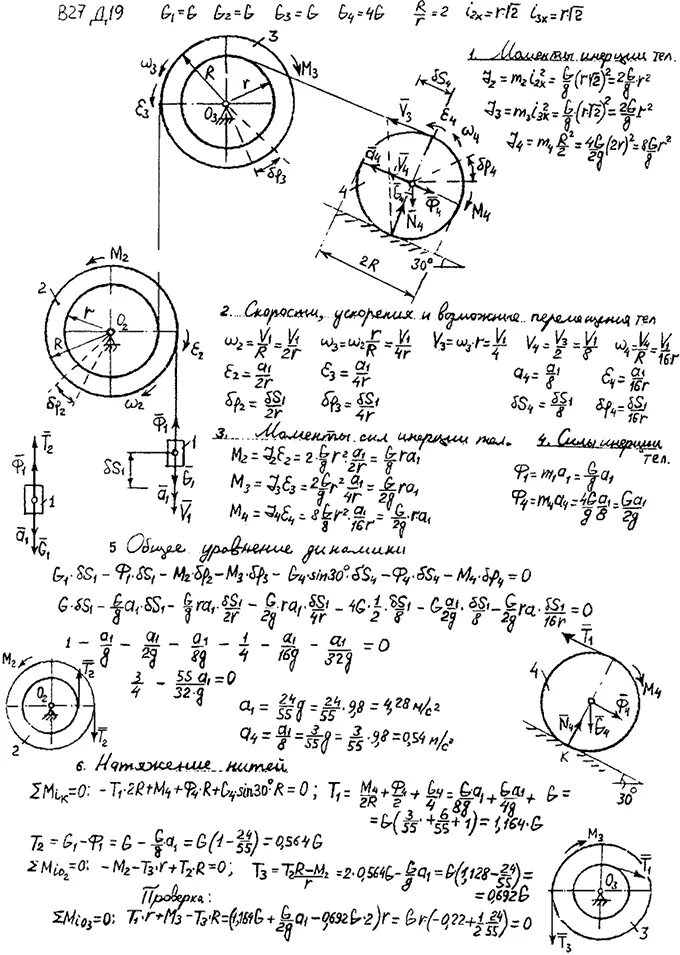 В27 Д19 G₁=G G₂=G G₃=G G₄=4G R/r=2 i₂ₓ=r√2 i₃ₓ=r√2
1. Моменты инерции тел.
J₂=m₂i₂ₓ²=G/g(r√2)²=2G/g r²
J₃=m₃i₃ₓ²=G/g(r√2)²=2G/g r²
J₄=m₄R²/2=4G/2g(2r)²=8G/g r²
ω₃ R r 3 M₃
ε₃ O₃ δφ₃
δS₄ V̄₃ ε₄ ω₄
ā₄ V̄₄ δφ₄
4 Ḡ₄ N̄₄ Φ̄₄ M₄
2R 30°
M₂
2 r O₂ R ε₂
δφ₂ ω₂
Φ̄₁ 1 δS₁ Ḡ₁ ā₁ V̄₁
T̄₂ Φ̄₁ 1 ā₁ Ḡ₁
2. Скорости, ускорения и возможные перемещения тел
ω₂=V₁/R=V₁/2r ω₃=ω₂r/R=V₁/4r V₃=ω₃·r=V₁/4 V₄=V₃/2=V₁/8 ω₄=V₄/R=V₁/16r
ε₂=a₁/2r ε₃=a₁/4r a₄=a₁/8 ε₄=a₁/16r
δφ₂=δS₁/2r δφ₃=δS₁/4r δS₄=δS₁/8 δφ₄=δS₁/16r
3. Моменты сил инерции тел. 4. Силы инерции тел.
M₂=J₂ε₂=2·G/g r²·a₁/2r=G/g ra₁ Φ₁=m₁a₁=G/g a₁
M₃=J₃ε₃=2G/g r²·a₁/4r=G/2g ra₁ Φ₄=m₄a₄=4G/g a₁/8=Ga₁/2g
M₄=J₄ε₄=8G/g r²·a₁/16r=G/2g ra₁
5 Общее уравнение динамики
G₁·δS₁−Φ₁·δS₁−M₂·δφ₂−M₃·δφ₃−G₄·sin30°·δS₄−Φ₄·δS₄−M₄·δφ₄=0
G·δS₁−G/g a₁·δS₁−G/g ra₁·δS₁/2r−G/2g·ra₁·δS₁/4r−4G·1/2·δS₁/8−G a₁/2g·δS₁/8−G/2g ra·δS₁/16r=0
1−a₁/g−a₁/2g−a₁/8g−1/4−a₁/16g−a₁/32g=0
3/4−55a₁/32·g=0
a₁=24/55g=24/55·9,8=4,28 м/с²
a₄=a₁/8=3/55g=3/55·9,8=0,54 м/с²
M₂ T̄₂ O₂ 2 T̄₂
T̄₁ 4 M₄ Φ̄₄ N̄₄ Ḡ₄ K 30°
6. Натяжение нитей
ΣMiₖ=0: −T₁·2R+M₄+Φ₄·R+G₄·sin30°R=0; T₁=M₄/2R+Φ₄/2+G₄/4=Ga₁/8g+Ga₁/4g+G=
=G(3/55+6/55+1)=1,164·G
T₂=G₁−Φ₁=G−G/g a₁=G(1−24/55)=0,564G
ΣMio₂=0: −M₂−T₃·r+T₂·R=0; T₃=T₂R−M₂/r=2·0,564G−G/g a₁=G(1,128−24/55)=
=0,692G
Проверка:
ΣMio₃=0: T₁·r+M₃−T₃·R=(1,164G+G/2g a₁−0,692G·2)r=Gr(−0,22+1/2 24/55)=0
M₃ T̄₁ O₃ T̄₃ 3